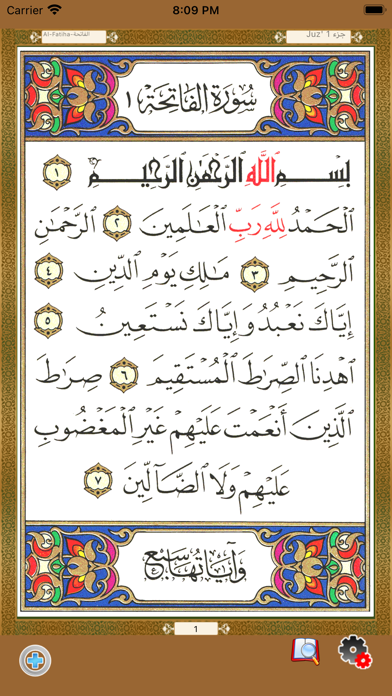 Carrier 8:09 PM
Al-Fatiha-الفاتحة Juz' 1 جزء
سُورَةُ الفَاتِحَةِ ١
بِسْمِ ٱللَّهِ ٱلرَّحْمَٰنِ ٱلرَّحِيمِ ١
ٱلْحَمْدُ لِلَّهِ رَبِّ ٱلْعَٰلَمِينَ ٢ ٱلرَّحْمَٰنِ
ٱلرَّحِيمِ ٣ مَٰلِكِ يَوْمِ ٱلدِّينِ ٤
إِيَّاكَ نَعْبُدُ وَإِيَّاكَ نَسْتَعِينُ ٥
ٱهْدِنَا ٱلصِّرَٰطَ ٱلْمُسْتَقِيمَ ٦ صِرَٰطَ
ٱلَّذِينَ أَنْعَمْتَ عَلَيْهِمْ غَيْرِ ٱلْمَغْضُوبِ
عَلَيْهِمْ وَلَا ٱلضَّآلِّينَ ٧
وَآيَاتُهَا سَبْعٌ
1